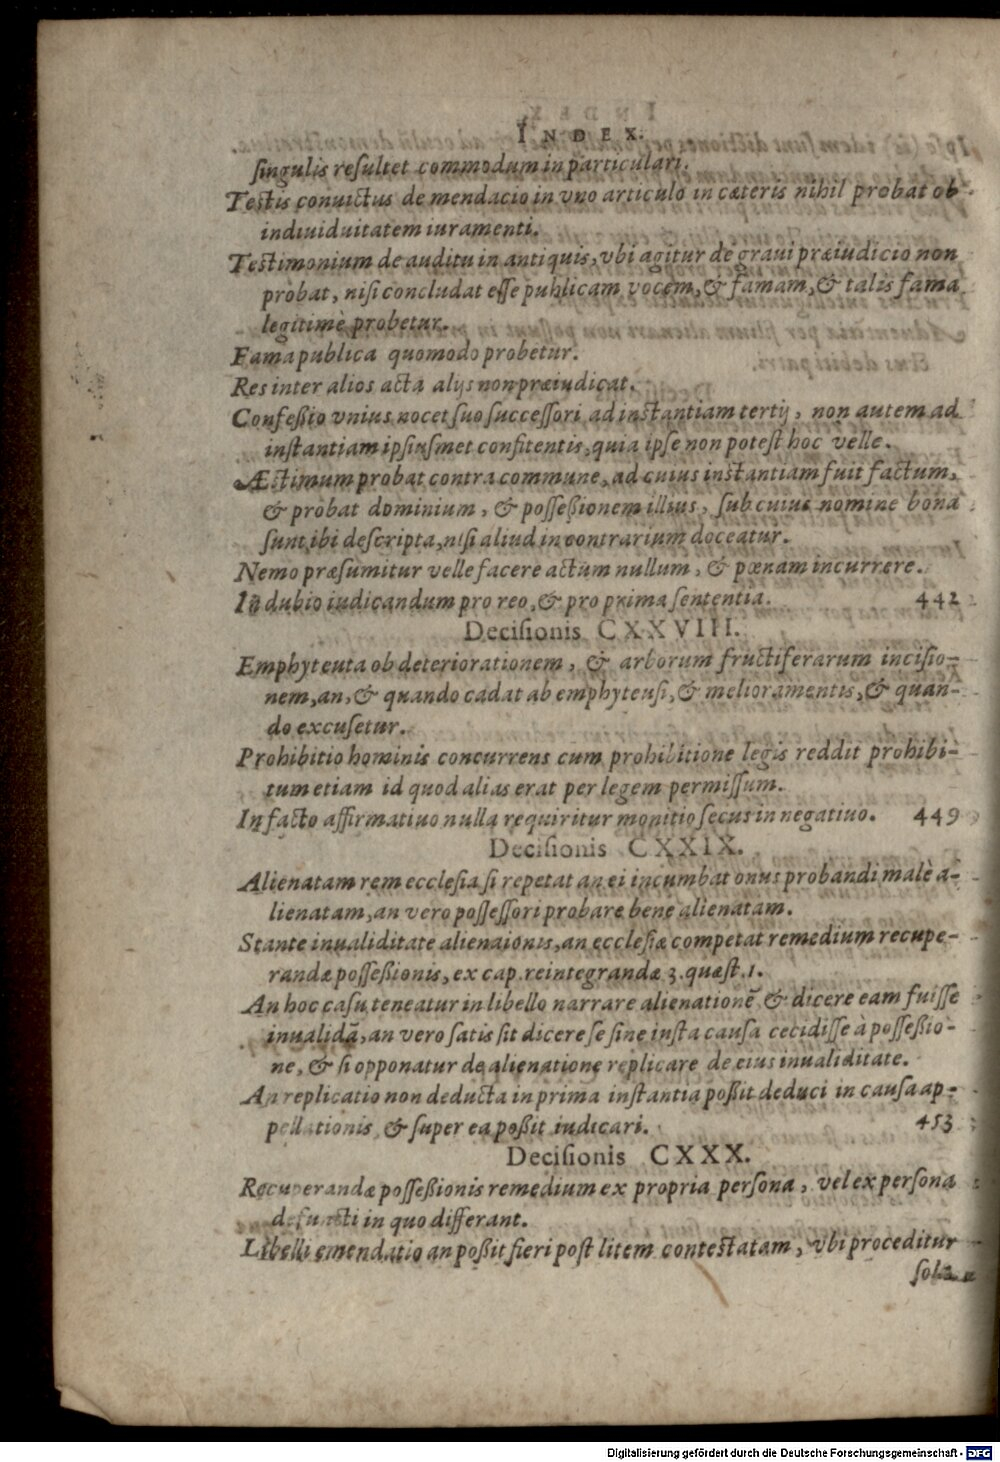 INDEX.
singulis resultet commodum in particulari.
Testis conuictus de mendacio in vno articulo in cæteris nihil probat ob
indiuiduitatem iuramenti.
Testimonium de auditu in antiquis, vbi agitur de graui præiudicio non
probat, nisi concludat esse publicam vocem, & famam, & talis fama
legitimè probetur.
Fama publica quomodo probetur.
Res inter alios acta alijs non præiudicat.
Confeßio vnius nocet suo successori ad instantiam tertij, non autem ad
instantiam ipsiusmet confitentis, quia ipse non potest hoc velle.
Æstimum probat contra commune, ad cuius instantiam fuit factum,
& probat dominium, & posseßionem illius, sub cuius nomine bona
sunt ibi descripta, nisi aliud in contrarium doceatur.
Nemo præsumitur velle facere actum nullum, & pœnam incurrere.
In dubio iudicandum pro reo, & pro prima sententia. 442
Decisionis CXXVIII.
Emphyteuta ob deteriorationem, & arborum fructiferarum incisio-
nem, an, & quando cadat ab emphyteusi, & melioramentis, & quan-
do excusetur.
Prohibitio hominis concurrens cum prohibitione legis reddit prohibi-
tum etiam id quod alias erat per legem permissum.
In facto affirmatiuo nulla requiritur monitio secus in negatiuo. 449
Decisionis CXXIX.
Alienatam rem ecclesia si repetat an ei incumbat onus probandi malè a-
lienatam, an vero possessori probare bene alienatam.
Stante inualiditate alienaionis, an ecclesiæ competat remedium recupe-
randæ posseßionis, ex cap. reintegrandæ 3. quæst. 1.
An hoc casu teneatur in libello narrare alienationē & dicere eam fuisse
inualidā, an vero satis sit dicere se sine iusta causa cecidisse à posseßio-
ne, & si opponatur de alienatione replicare de eius inualiditate.
An replicatio non deducta in prima instantia poßit deduci in causa ap-
pellationis & super ea poßit iudicari. 453
Decisionis CXXX.
Recuperandæ posseßionis remedium ex propria persona, vel ex persona
defuncti in quo differant.
Libelli emendatio an poßit fieri post litem contestatam, vbi proceditur
Digitalisierung gefördert durch die Deutsche Forschungsgemeinschaft - DFG